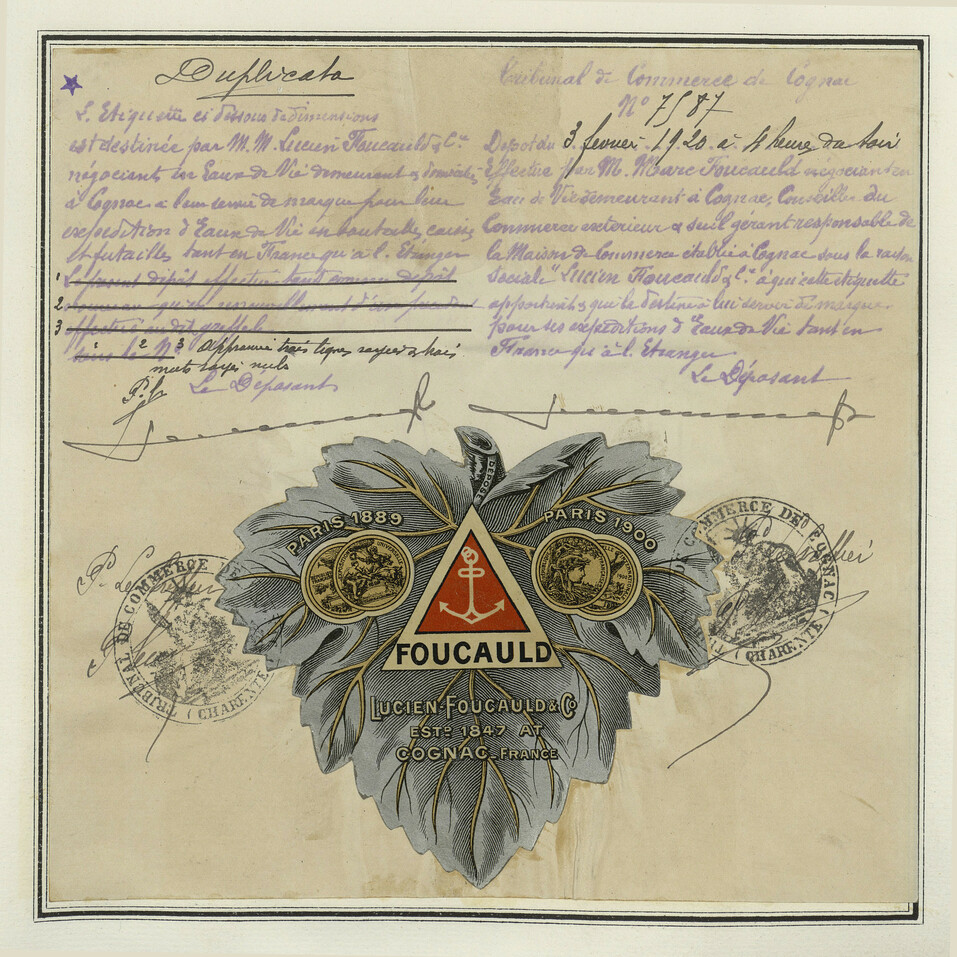 Duplicata
L'Etiquette ci dessous de dimensions
est destinée par M.M. Lucien Foucauld & Cie
négociants en Eaux de Vie demeurant & domiciliés
à Cognac à leur servir de marque pour leur
expedition d'Eaux de Vie en bouteilles, caisses
et futailles tant en France qu'à l'Etranger
1 Le present dépôt effectué tant comme depôt
2
3 effectués au dit greffe le
sous le No
1 2 3 Approuvé trois lignes rayées & trois
mots rayés nuls
Le Déposant
Tribunal de Commerce de Cognac
No 7587
Depot du 3 fevrier 1920 à 4 heure du soir
Effectué par M. Marc Foucauld négociant en
Eau de Vie demeurant à Cognac, Conseiller du
Commerce exterieur & seul gérant responsable de
la Maison de Commerce établie à Cognac sous la raison
Sociale "Lucien Foucauld & Cie" à qui cette étiquette
appartient & qui la destine à lui servir de marque
pour ses expeditions d'Eaux de Vie tant en
France qu'à l'Etranger
Le Déposant
DEPOSÉ
PARIS 1889
PARIS 1900
FOUCAULD
LUCIEN-FOUCAULD & Co
ESTD 1847 AT
COGNAC_FRANCE
TRIBUNAL DE COMMERCE DE
(CHARENTE)
COMMERCE DE COGNAC
(CHARENTE)